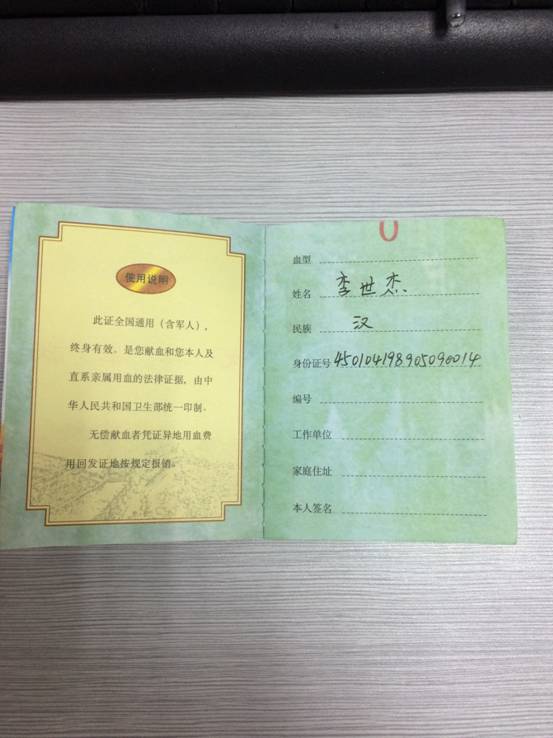 使用说明
此证全国通用（含军人），
终身有效。是您献血和您本人及
直系亲属用血的法律证据，由中
华人民共和国卫生部统一印制。
无偿献血者凭证异地用血费
用回发证地按规定报销。
血型
姓名 李世杰
民族 汉
身份证号 450104198905090014
编号
工作单位
家庭住址
本人签名